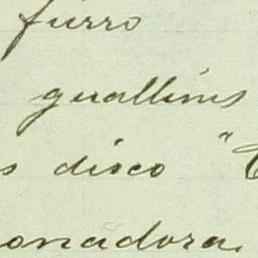 furro
guallins
s disco "C
onadora.